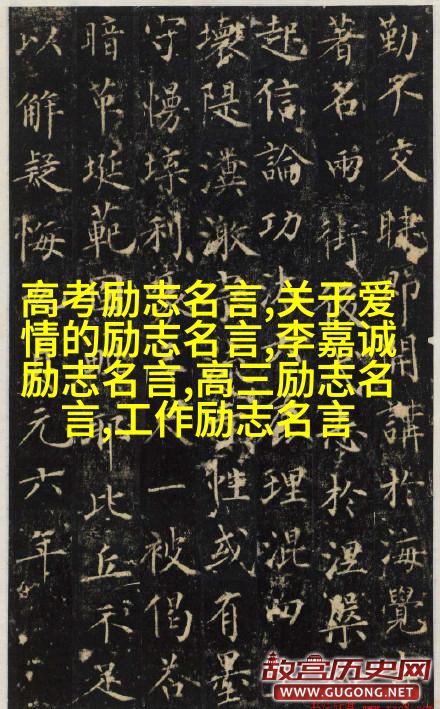 勤不交睫即用講於海覺
著名兩街於涅槃
起信論功法理混四
壞隄性或有墨
守慢利一被偈若
暗埏範此丘示足
以解疑悔元六年
高考励志名言,关于爱
情的励志名言,李嘉诚
励志名言,高三励志名
言,工作励志名言
故宫历史网
WWW.GUGONG.NET